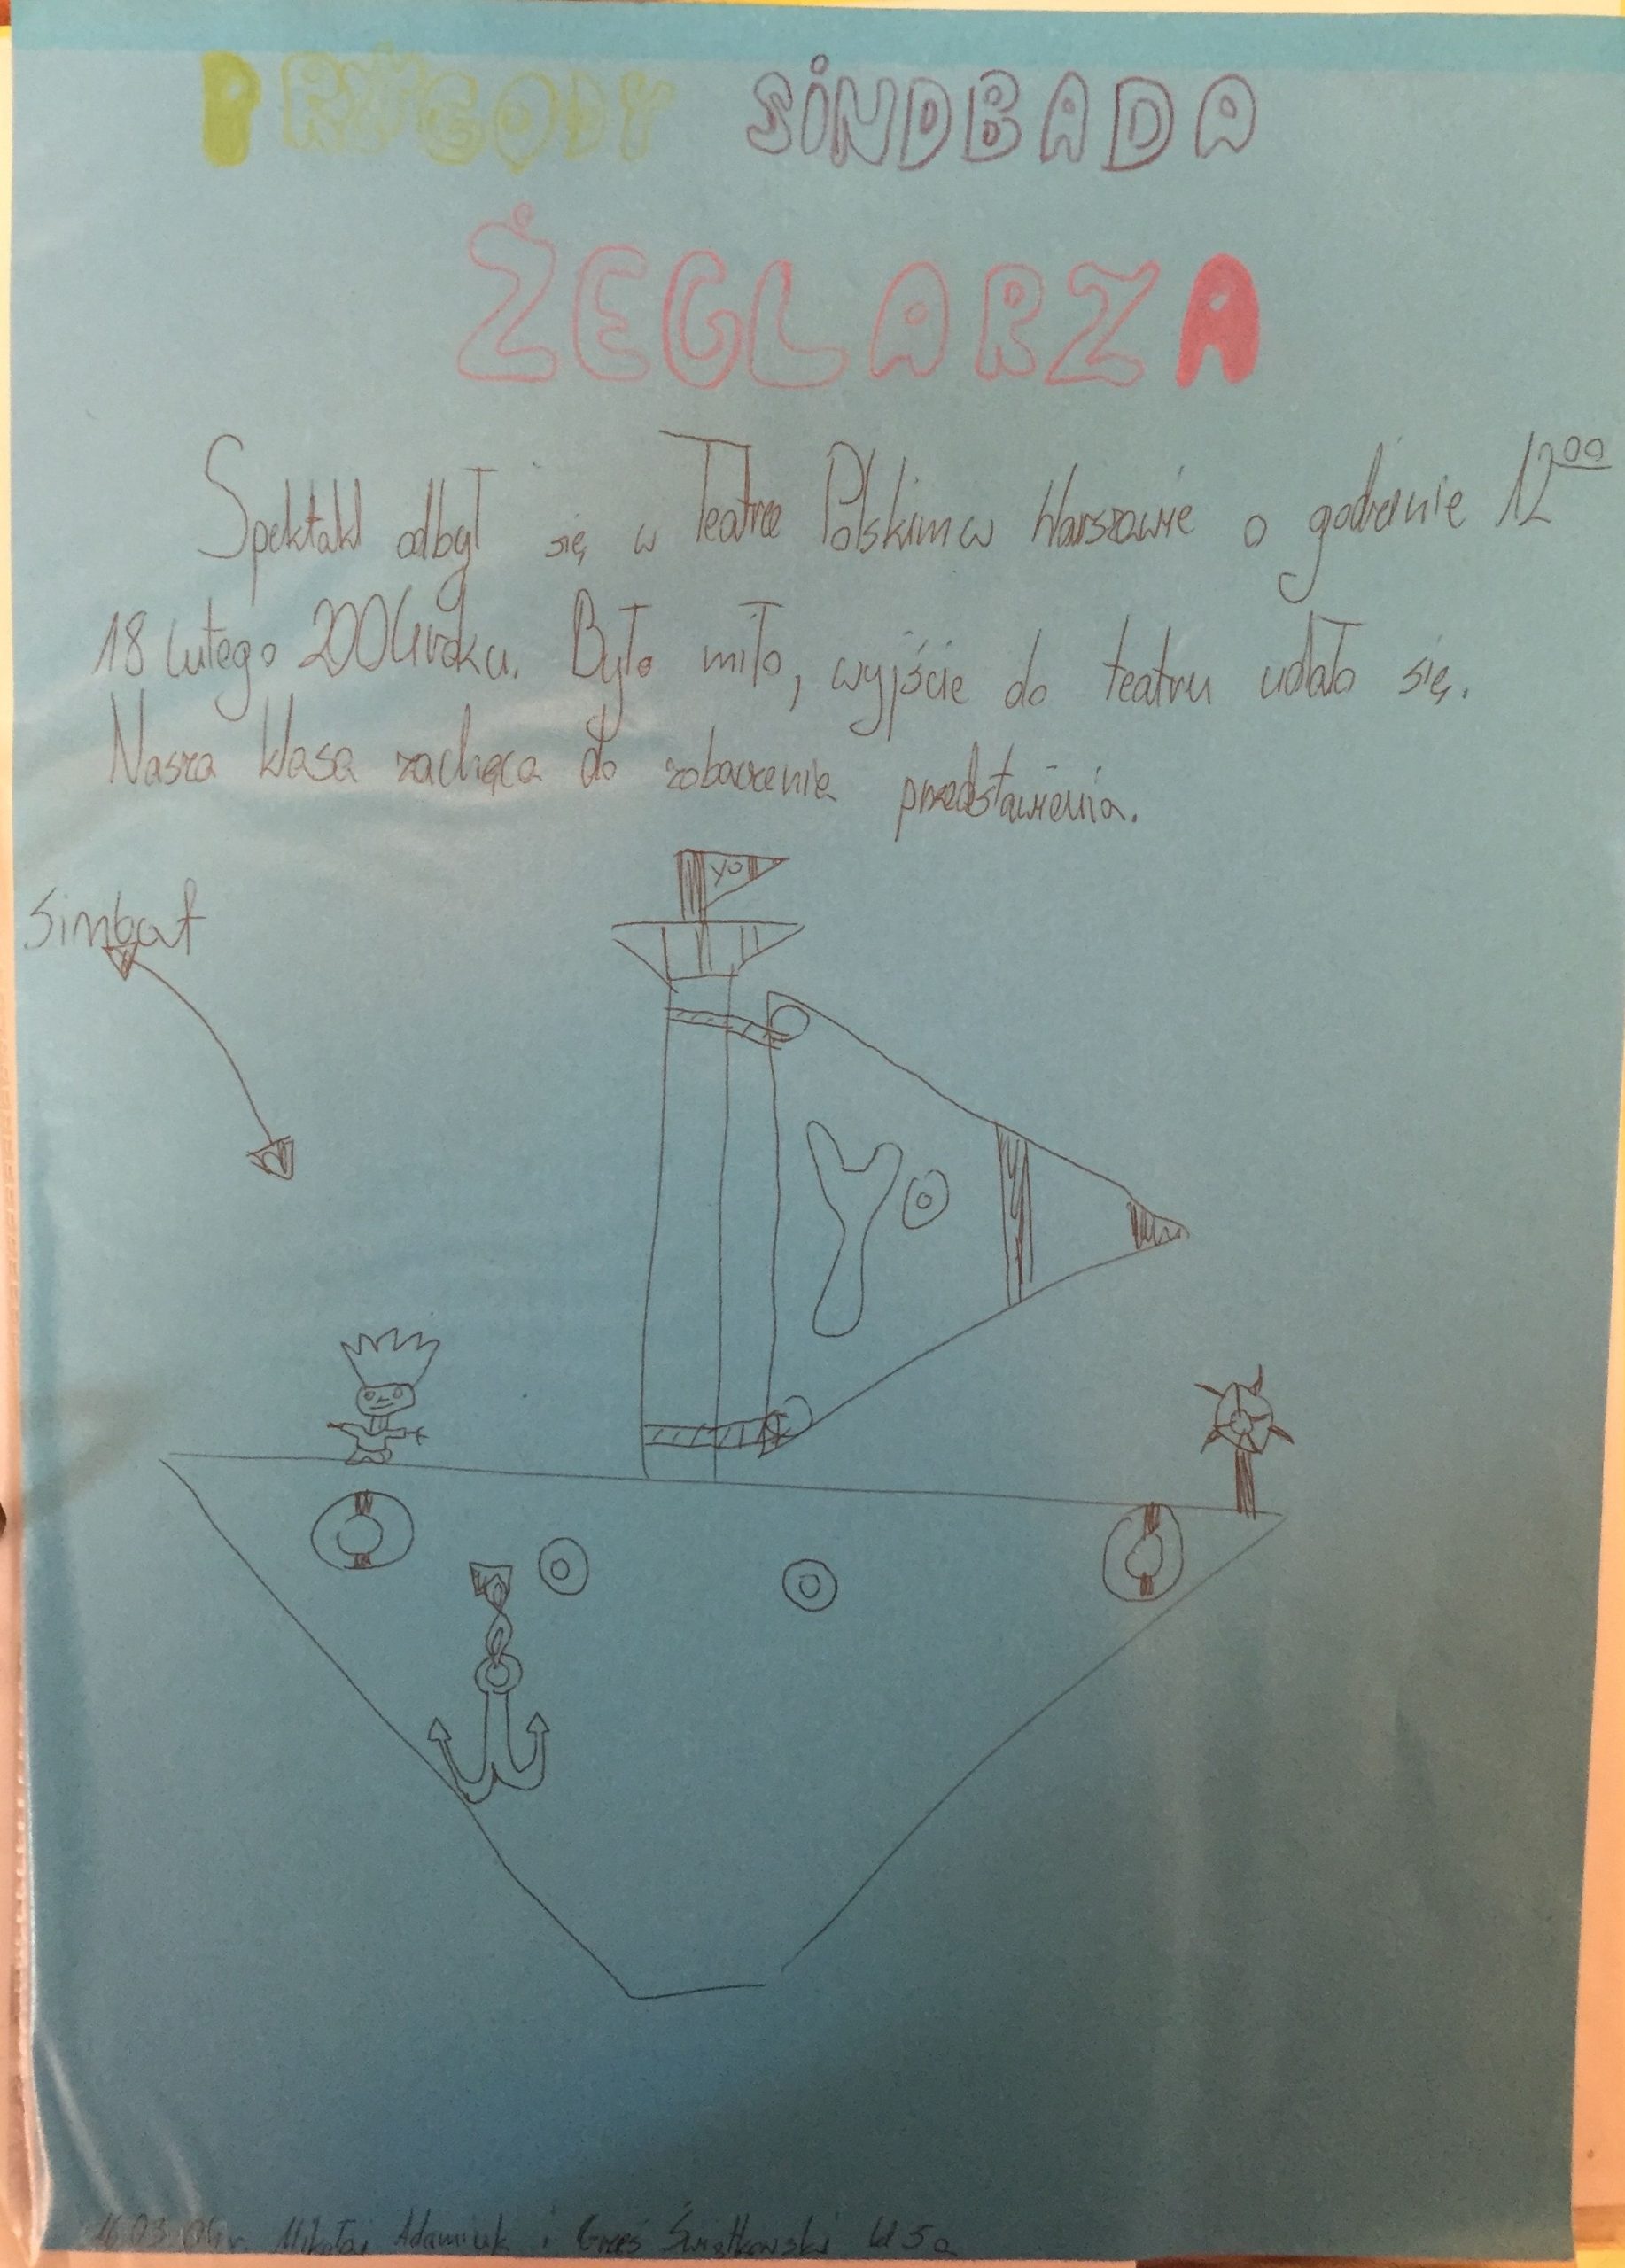 PRZYGODY SINDBADA
ŻEGLARZA
Spektakl odbył się w Teatrze Polskim w Warszawie o godzinie 12⁰⁰
18 lutego 2004 roku. Było miło, wyjście do teatru udało się.
Nasza klasa zachęca do zobaczenia przedstawienia.
yo
Simbat
YO
16.03.04r. Mikołaj Adamiuk i Grześ Świątkowski kl 5a